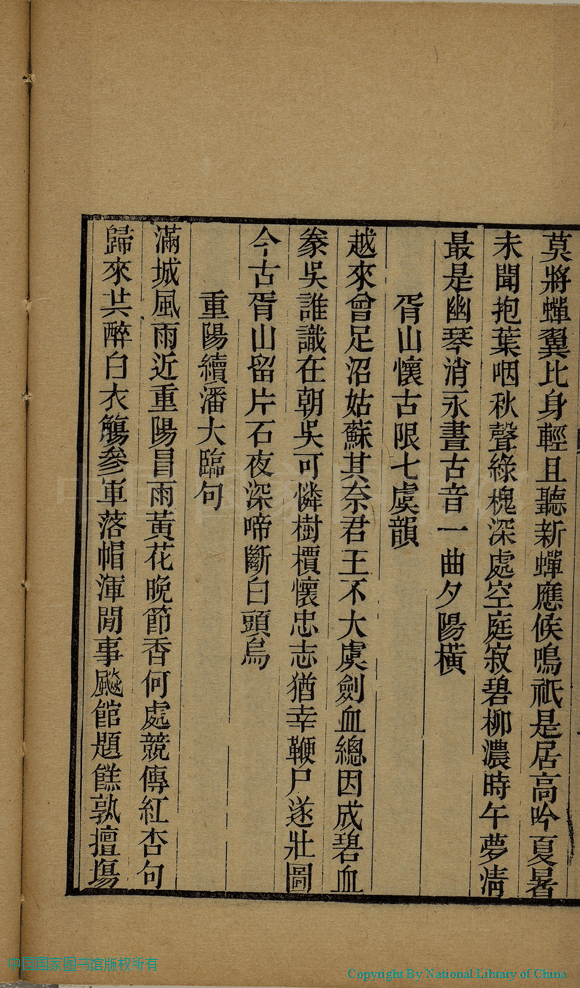 莫將蟬翼比身輕且聽新蟬應候鳴祇是居高吟夏暑
未聞抱葉咽秋聲綠槐深處空庭寂碧柳濃時午夢清
最是幽琴消永晝古音一曲夕陽橫
胥山懷古限七虞韻
越來曾足沼姑蘇其奈君王不大虞劍血總因成碧血
豢吳誰識在朝吳可憐樹檟懷忠志猶幸鞭尸遂壯圖
今古胥山留片石夜深啼斷白頭烏
重陽續潘大臨句
滿城風雨近重陽冒雨黃花晚節香何處競傳紅杏句
歸來共醉白衣觴參軍落帽渾閒事飈館題餻孰擅塲
中国国家图书馆版权所有
Copyright By National Library of China